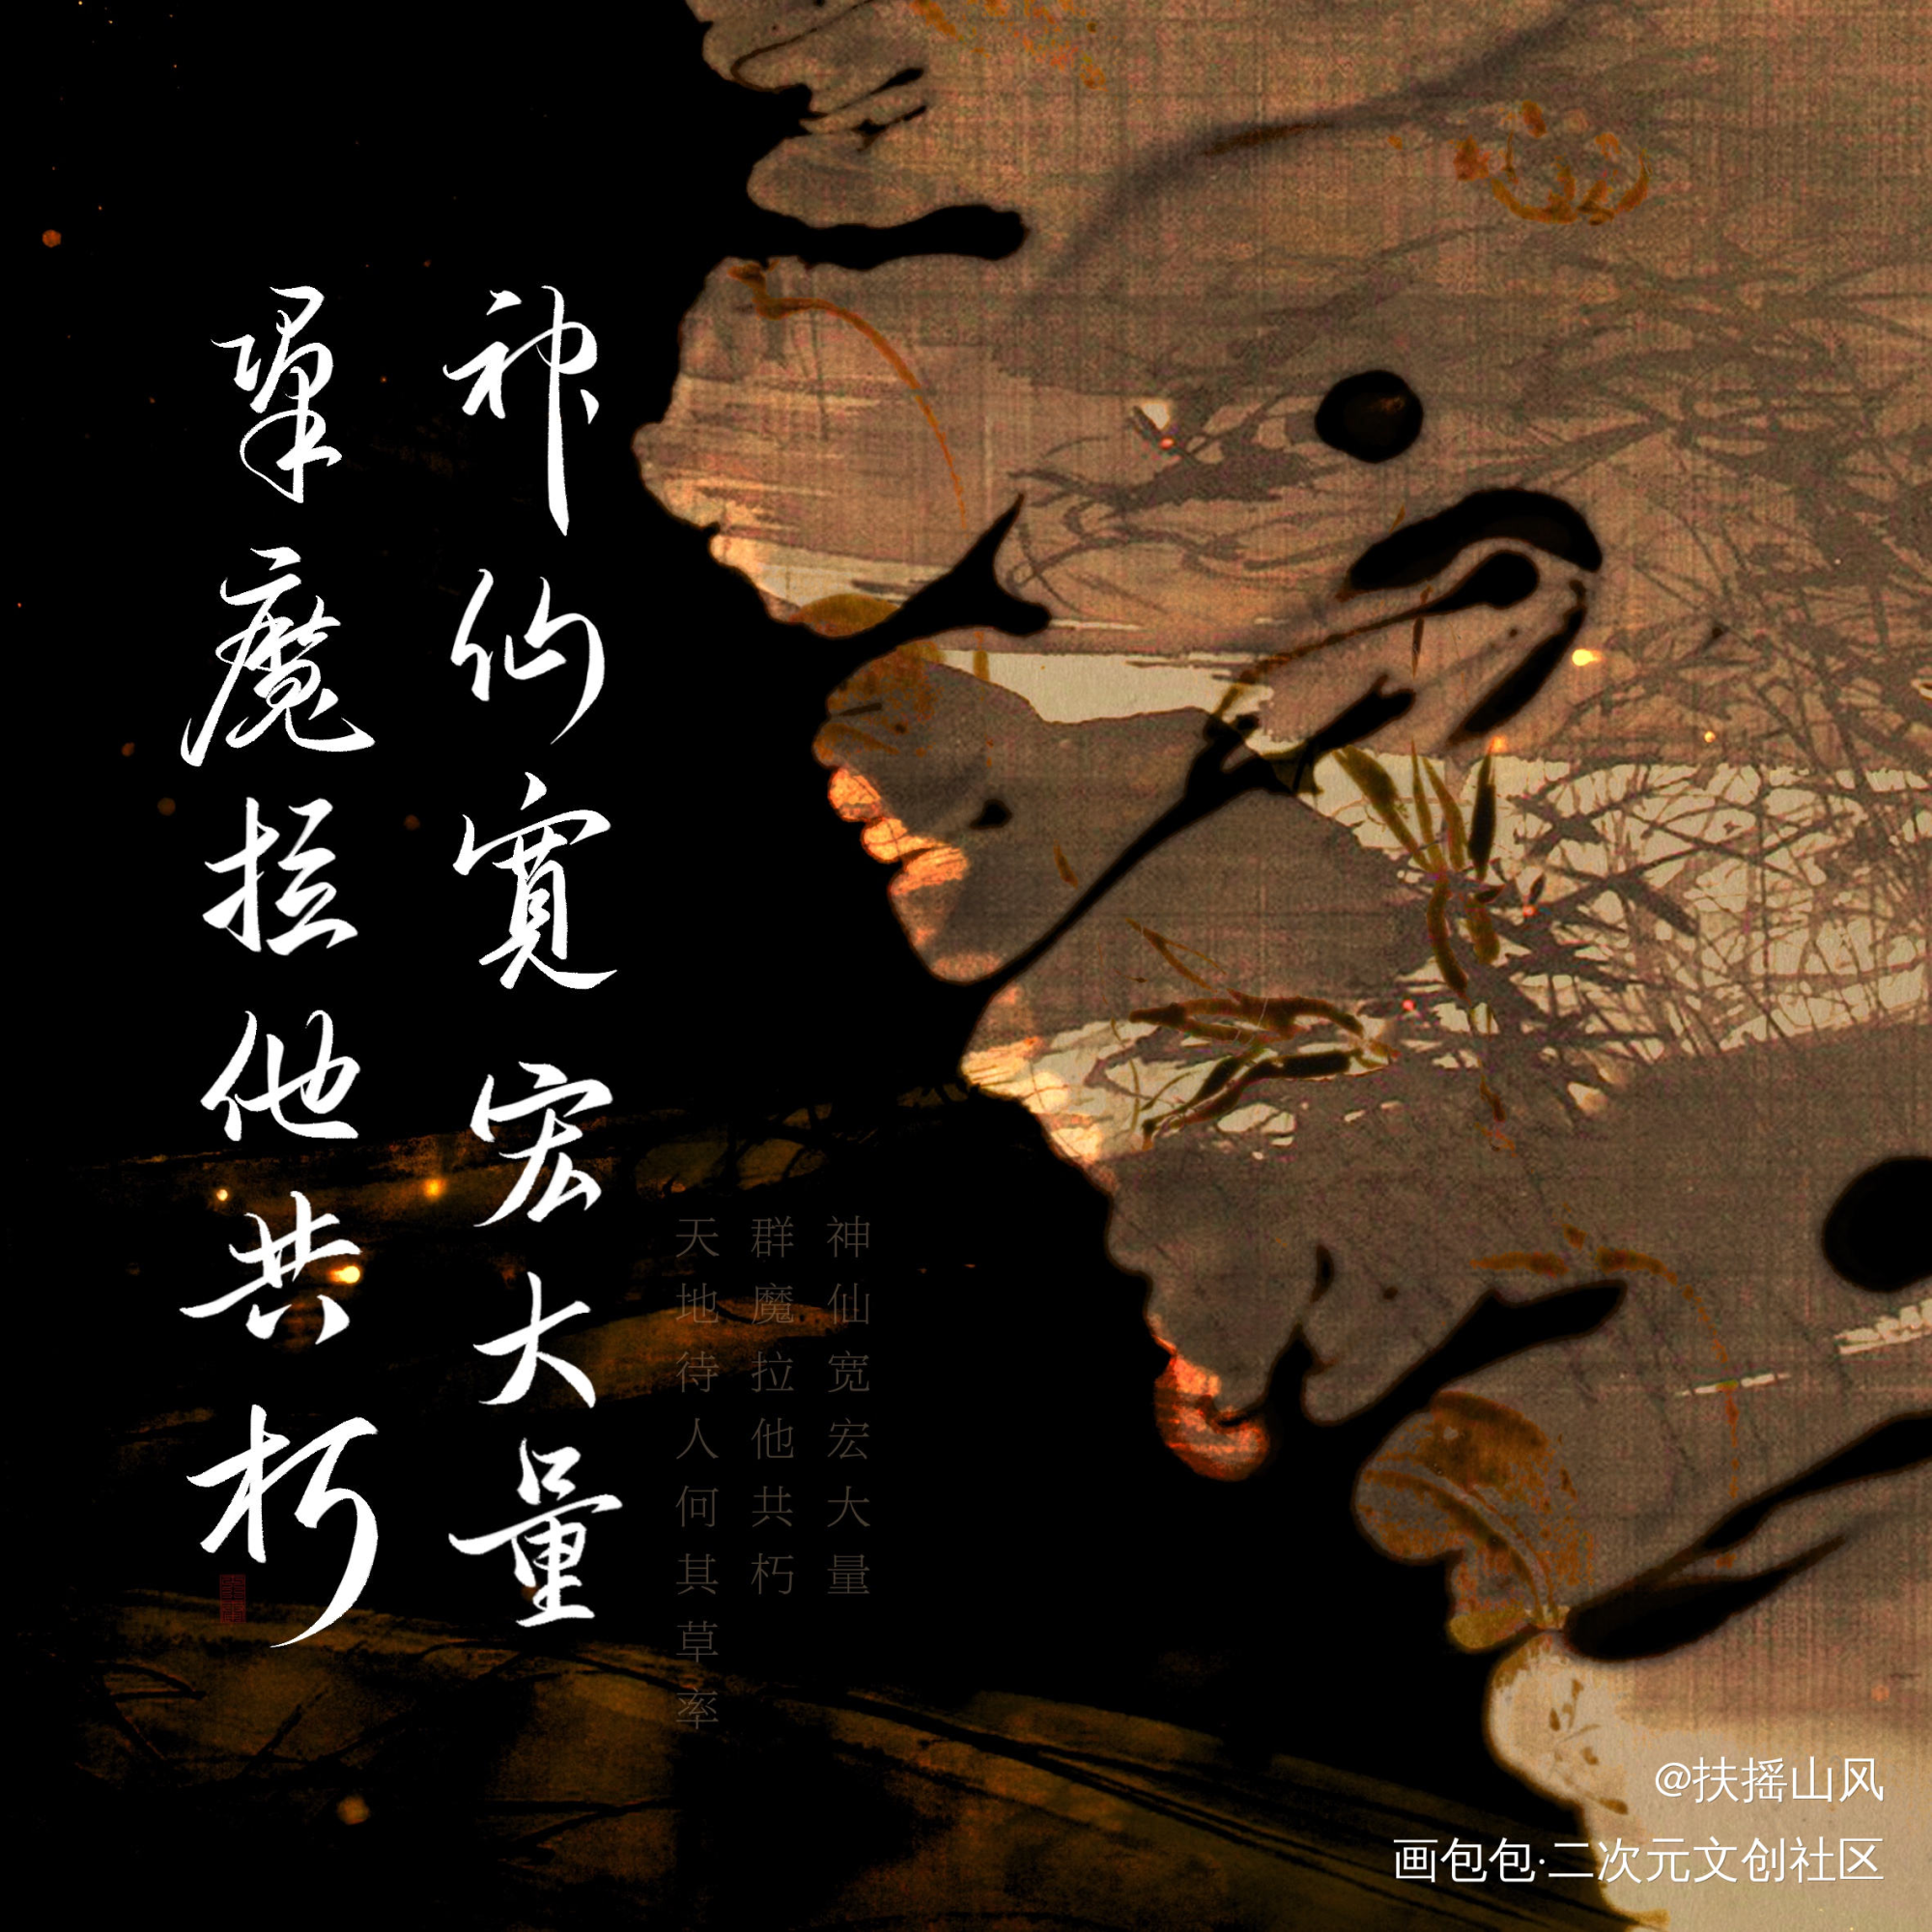 神仙寬宏大量
羣魔拉他共朽
神仙宽宏大量
群魔拉他共朽
天地待人何其草率
@扶摇山风
画包包·二次元文创社区